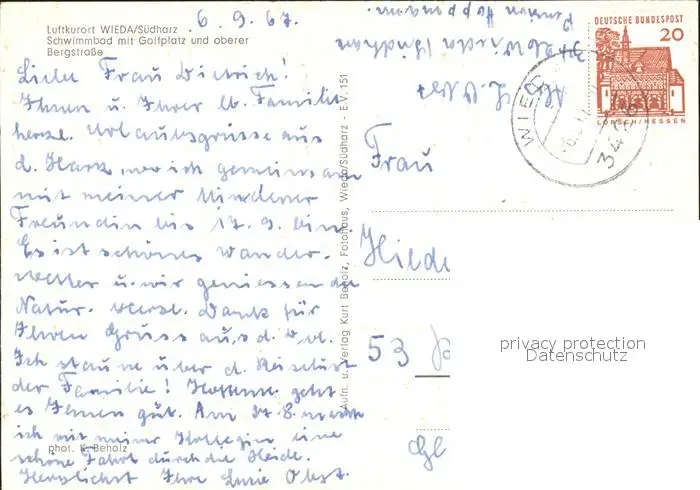 6.9.67.
Luftkurort WIEDA/Südharz
Schwimmbad mit Golfplatz und oberer
Bergstraße
Liebe Frau Dietrich!
Ihnen u. Ihrer lb. Familie
herzl. Urlaubsgrüsse aus
d. Harz, wo ich gemeinsam
mit meiner Mindener
Freundin bis 17.9. bin.
Es ist schönes Wander-
wetter u. wir geniessen die
Natur. Herzl. Dank für
Ihren Gruss aus d.
Ich staune über d. Reiselust
der Familie! Hoffentl. geht
es Ihnen gut. Am 27.8. machte
ich mit meiner Kollegin eine
schöne Fahrt durch die Heide.
Herzlichst Ihre Obst.
phot. K. Beholz
Aufn. u. Verlag Kurt Beholz, Fotohaus, Wieda/Südharz - E.V. 151
Abs.
Wieda/Südharz
Pension
DEUTSCHE BUNDESPOST
20
LORSCH/HESSEN
WIED
3426
Frau
Hilde
53
privacy protection
Datenschutz